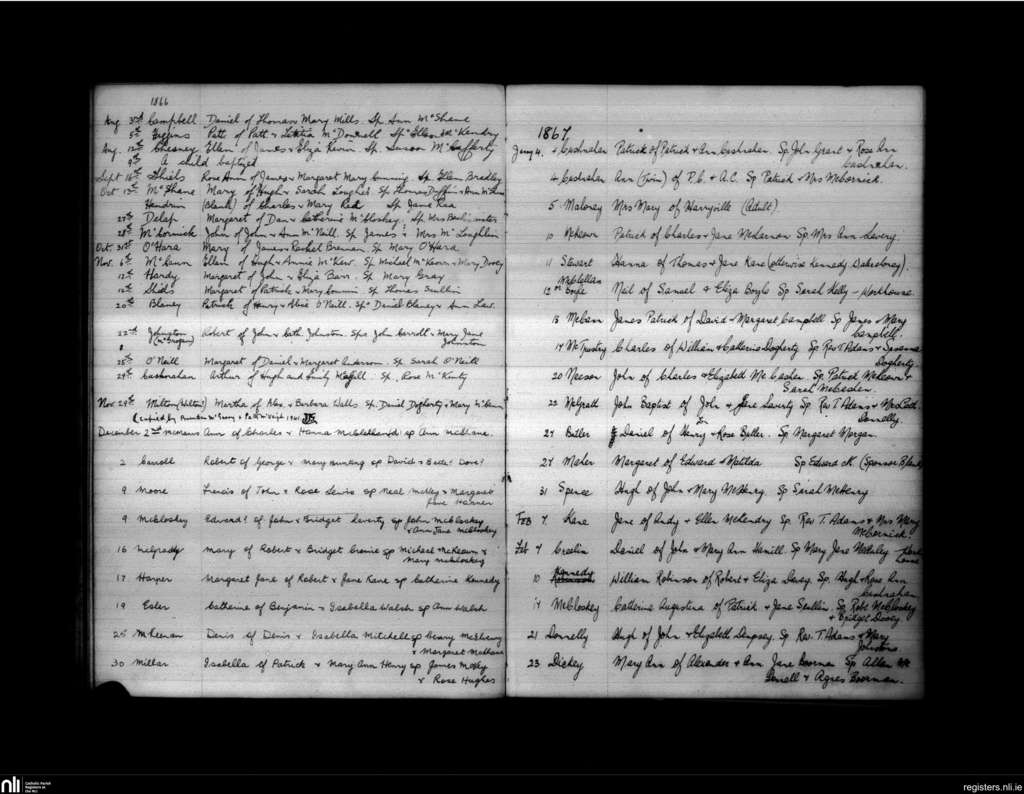 1866
Aug 3rd Campbell Daniel of Thomas & Mary Mills. Sp. Ann McShane
5th Patt of Patt & Letitia McDonnell Sp. Ellen McKendry
Aug. 12th Chesney Ellen of James & Eliza Sp. McCafferty
9th A child baptized
Sept 16th Shiels Rose Ann of James & Margaret Mary Cunning. Sp. Ellen Bradley
Oct 13th McShane Mary of Hugh & Sarah Sp. Thomas Duffin & Ann
Hendrin (Blank) of Charles & Mary Rea Sp. Jane Rea
27th Delap Margaret of Dan & Catherine McCloskey. Sp. Mrs
28th McCormick John of John & Ann McNeill. Sp. James & Mrs McLaughlin
Oct. 31st O'Hara Mary of James & Rachel Brennan. Sp. Mary O'Hara
Nov. 6th Ellen of Hugh & Annie Sp. Michael McKeown & Mary Davey
12th Hardy Margaret of John & Eliza Barr. Sp. Mary Gray
12th Shiels Margaret of Patrick & Mary Cunnin Sp. Thomas Scullin
20th Blaney Patrick of Henry & Alice O'Neill. Sps Daniel Blaney & Ann
22nd Johnston Robert of John & Cath. Johnston. Sps John Carroll & Mary Jane
Johnston
25th O'Neill Margaret of Daniel & Margaret Anderson. Sp. Sarah O'Neill
29th Cashnahan Arthur of Hugh and Emily Sp. Rose McKinty
Nov. 29th Milton (Hilton) Martha of Alex & Barbara Walls Sp. Daniel Dogherty & Mary
December 2nd McManus Ann of Charles & Hanna Sp Ann McShane.
2 Carroll Robert of George & Mary Hunting Sp David & Dove?
9 Moore Francis of John & Rose Lewis Sp Neal & Margaret
Jane
9 McCloskey Edward? of John & Bridget Laverty Sp John McCloskey
& Ann Jane McCloskey
16 Mary of Robert & Bridget Sp Michael McKeown &
Mary McCloskey
17 Harper Margaret Jane of Robert & Jane Kane Sp Catherine Kennedy
19 Esler Catherine of Benjamin & Isabella Walsh Sp Ann Walsh
25 McKeenan Denis of Denis & Isabella Mitchell Sp Henry McIlhenny
& Margaret
30 Millar Isabella of Patrick & Mary Ann Henry Sp James
& Rose Hughes
1867
Jany 4. Cashnahan Patrick of Patrick & Ann Cashnahan. Sp. John Grant & Rose Ann
Cashnahan.
4 Cashnahan Ann (Twin) of P.C. & A.C. Sp Patrick & Mrs McCormick.
5 Maloney Mrs Mary of Harryville (Adult).
10 McKeown Patrick of Charles & Jane McLernon Sp. Mrs Ann Lavery.
11 Stewart Hanna of Thomas & Jane Kane (otherwise Kennedy
12th Neil of Samuel & Eliza Boyle Sp Sarah Kelly - Workhouse.
13 McCann James Patrick of David & Margaret Campbell Sp James & Mary
Campbell.
14 McTrustry Charles of William & Catherine Dogherty Sp. Rev T Adams & Susanna
Dogherty.
20 Neeson John of Charles & Elizabeth McCasher. Sp. Patrick McKeown &
Sarah McCasher.
22 McGrath John Baptist of John & Jane Laverty Sp. Rev T Adams & Mrs Cath.
Donnelly.
27 Butler Daniel of Henry & Rose Butler. Sp. Margaret Morgan.
27 Maher Margaret of Edward & Matilda Sp Edward K. (Sponsor Blank)
31 Spence Hugh of John & Mary McHenry. Sp Sarah McHenry
Feb 4 Kane Jane of Andy & Ellen McKendry Sp. Rev. T. Adams & Mrs Mary
McCormick.
Feb 7 Creelin Daniel of John & Mary Ann Hamill. Sp Mary Jane
House
10 Kennedy Robinson William Robinson of Robert & Eliza Davey. Sp. Hugh & Rose Ann
Cashnahan
14 McCloskey Catherine Augustina of Patrick & Jane Scullin Sp Robt McCloskey
& Bridget Davey
21 Donnelly Hugh of John & Elizabeth Dempsey. Sp. Rev. T Adams & Mary
Johnstone.
23 Dickey Mary Ann of Alexander & Ann Jane Boorman Sp Allen
& Agnes Boorman.
nli
Catholic Parish
Registers at
the NLI
registers.nli.ie